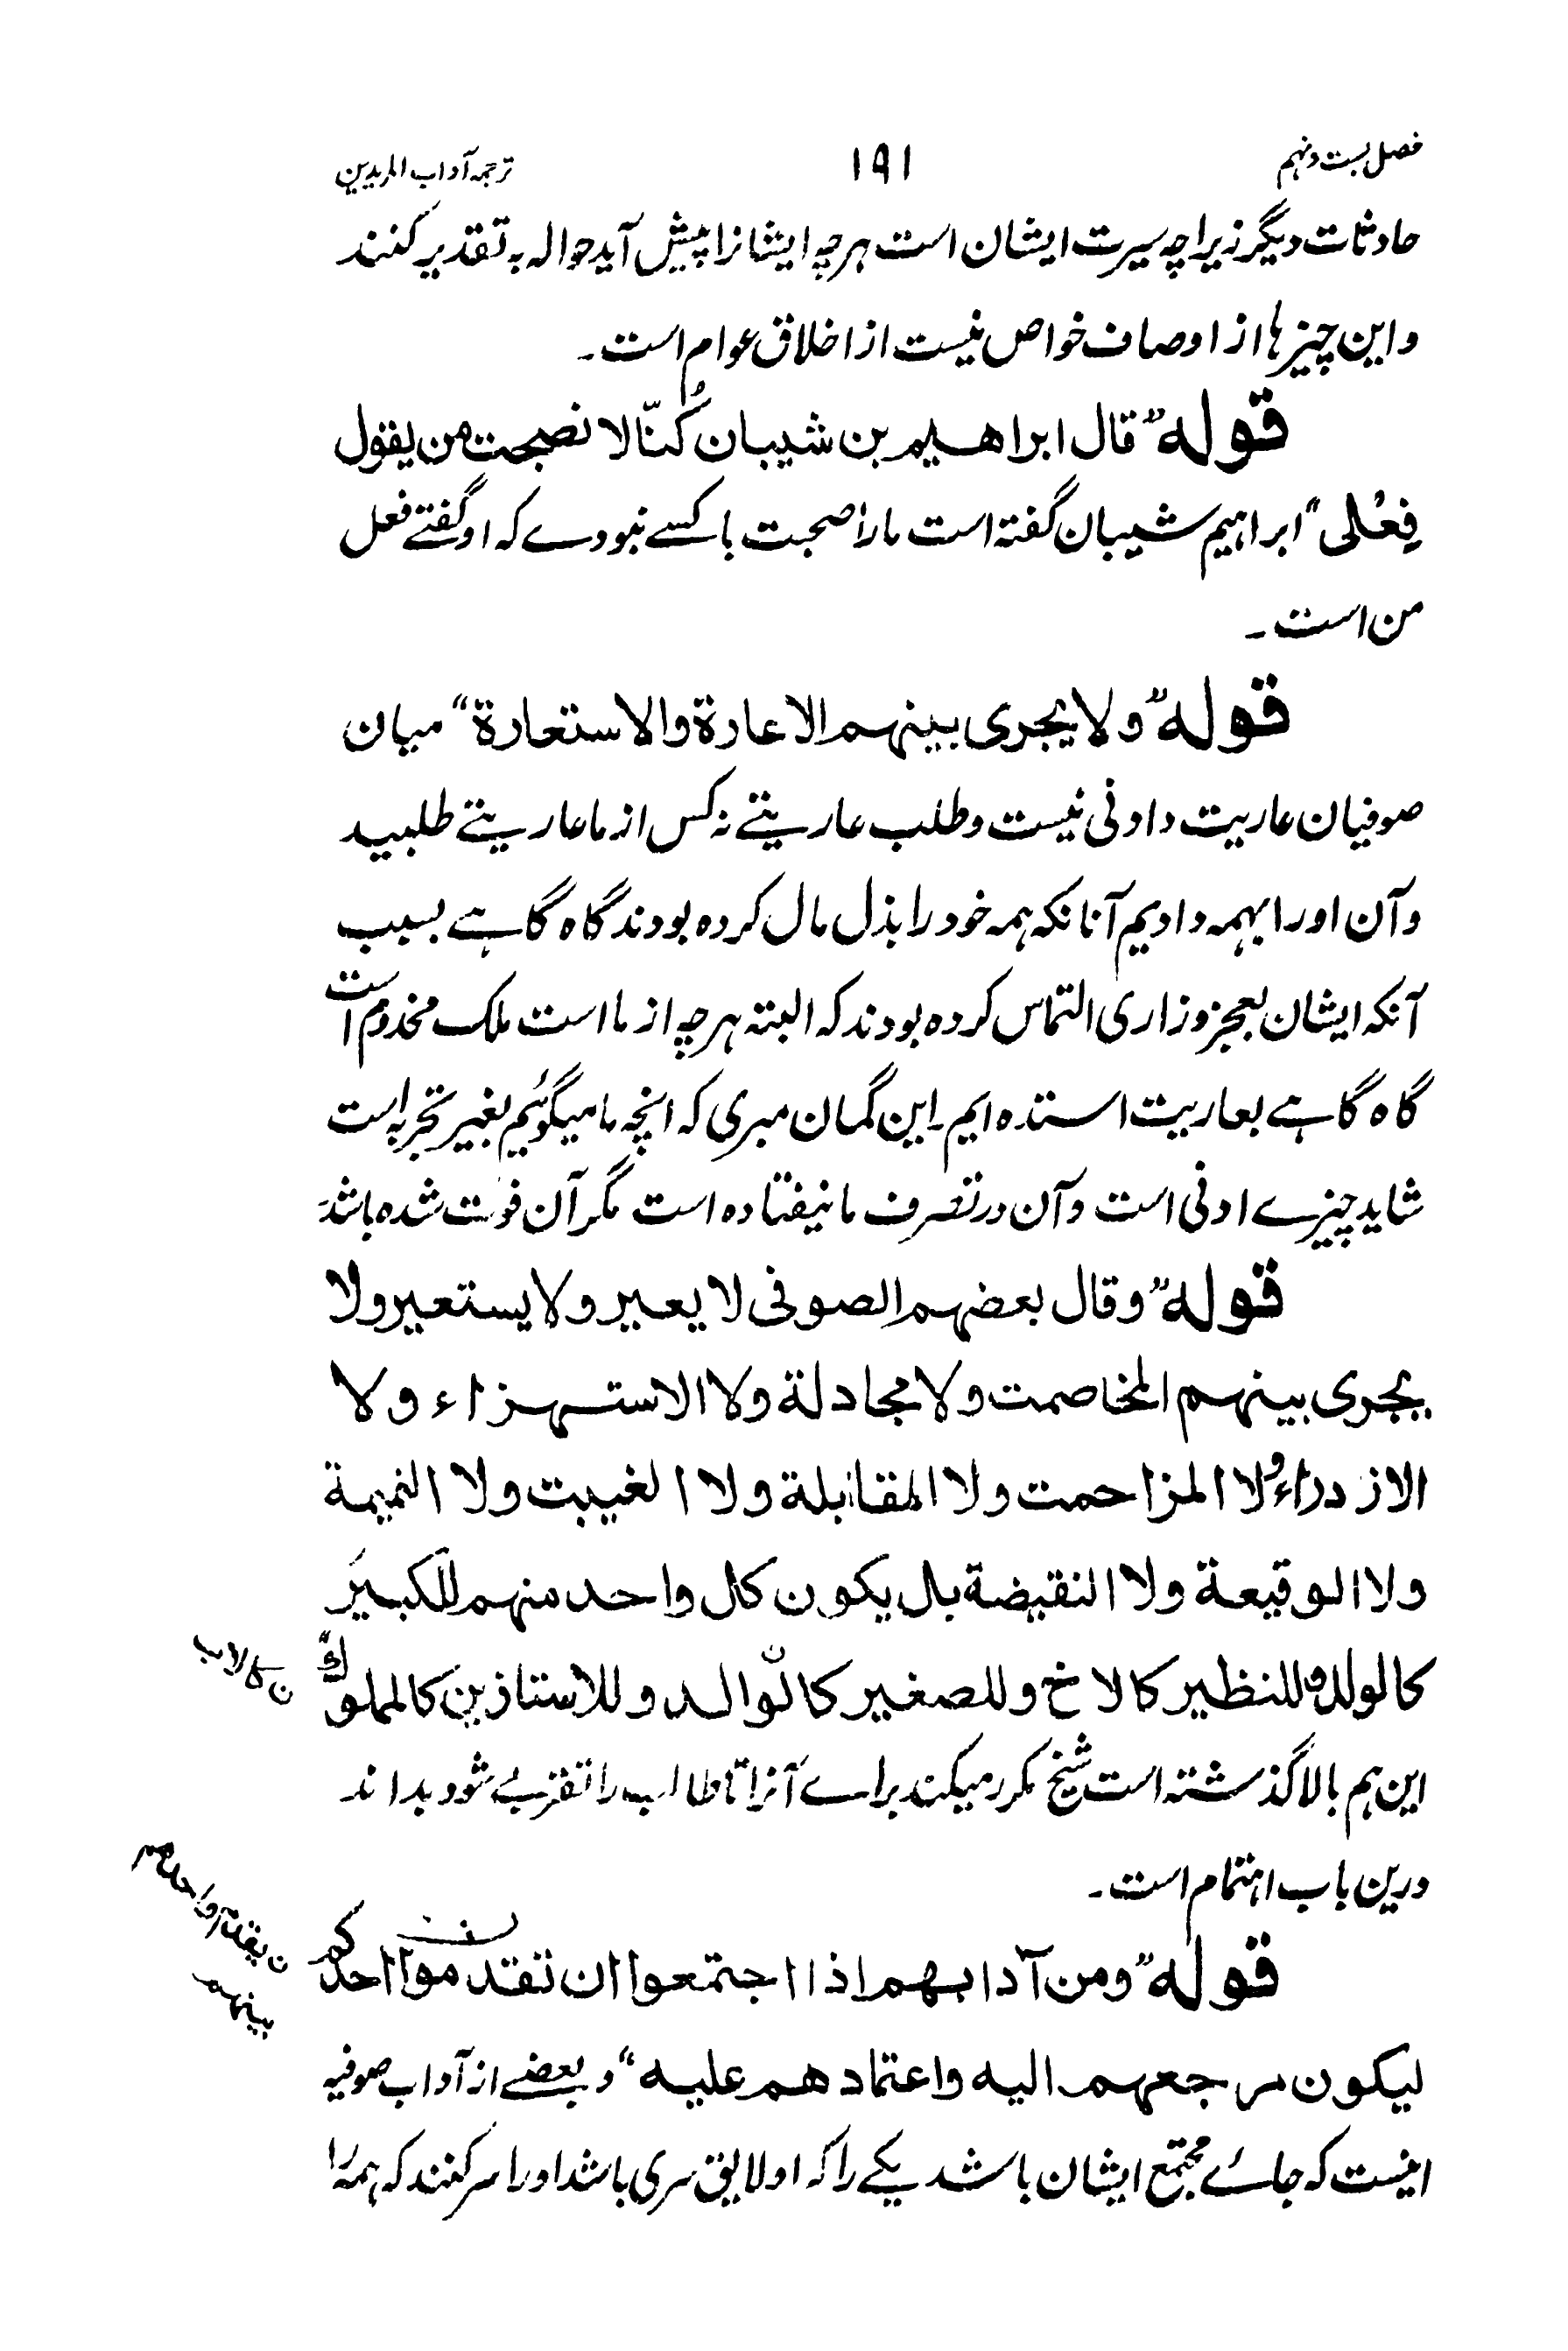 فصل بست و نهم ۱۹۱ ترجمه آداب المریدین
حادثات دیگر زیراچه سیرت ایشان است هرچه ایشانرا پیش آید حواله به تقدیر کنند
و این چیزها از اوصاف خواص نیست از اخلاق عوام است۔
قوله "قال ابراهیم بن شیبان کُنّا لا نصحبت من یقول
فِعْلی" ابراہیم شیبان گفته است ما را صحبت با کسے نبودے که او گفتے فعل
من است۔
قوله "ولا یجری بینهم الاعارة والاستعارة" میان
صوفیان عاریت دادنی نیست و طلب عاریتے نه کس از ما عاریتے طلبید
و آن او را بهمه دادیم آنانکه همه خود را بذل مال کرده بودند گاه گاہے بسبب
آنکه ایشان بعجز و زاری التماس کرده بودند که البته هرچه از ما است ملک مخدوم است
گاه گاہے بعاریت استده ایم۔ این گمان مبری که انچه ما میگوئیم بغیر تجربه است
شاید چیزے ادنی است و آن در تصرف ما نیفتاده است مگر آن فوت شده باشد
قوله "وقال بعضهم الصوفی لا یعیر ولا یستعیر ولا
یجری بینهم المخاصمت ولا مجادلة ولا الاستهزاء ولا
الازدراء ولا المزاحمت ولا المقابلة ولا الغیبت ولا النمیمة
ولا الوقیعة ولا النقیضة بل یکون کل واحد منهم للکبیر
کالولد وللنظیر کالاخ وللصغیر کالوالد وللاستاذین کالمملوك"
ن کالاب
این هم بالا گذشته است شیخ مکرر میکند برائے آنرا تا طالب را تقربے شود بداند
درین باب اهتمام است۔
قوله "ومن آدابهم اذا اجتمعوا ان تقدموا احدکم
بینهم
لیکون مرجعهم الیه واعتمادهم علیه" و بعضے از آداب صوفیه
اینست که جائے مجتمع ایشان باشد یکے را که او لایق سری باشد او را سر کنند که همه را